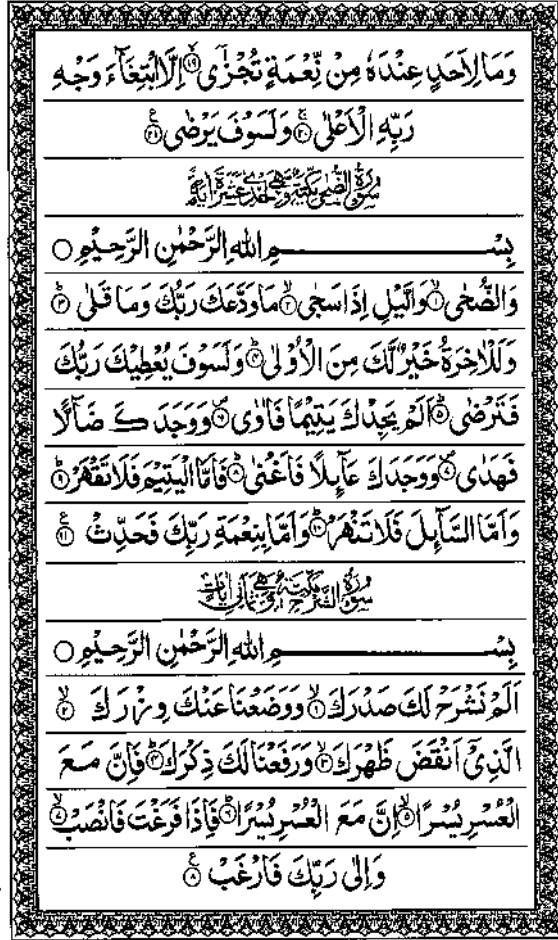 وَمَا لِاَحَدٍ عِنْدَهٗ مِنْ نِّعْمَةٍ تُجْزٰٓى ۙ۝۱۹ اِلَّا ابْتِغَآءَ وَجْهِ
رَبِّهِ الْاَعْلٰى ۚ۝۲۰ وَلَسَوْفَ يَرْضٰى ۝۲۱ع
سُوْرَةُ الضُّحٰى مَكِّيَّةٌ وَّهِىَ اِحْدٰى عَشَرَةَ اٰيَةً
بِسْمِ اللهِ الرَّحْمٰنِ الرَّحِيْمِ ۝
وَالضُّحٰى ۙ۝۱ وَالَّيْلِ اِذَا سَجٰى ۙ۝۲ مَا وَدَّعَكَ رَبُّكَ وَمَا قَلٰى ؕ۝۳
وَلَلْاٰخِرَةُ خَيْرٌ لَّكَ مِنَ الْاُوْلٰى ؕ۝۴ وَلَسَوْفَ يُعْطِيْكَ رَبُّكَ
فَتَرْضٰى ؕ۝۵ اَلَمْ يَجِدْكَ يَتِيْمًا فَاٰوٰى ۪۝۶ وَوَجَدَكَ ضَآلًّا
فَهَدٰى ۪۝۷ وَوَجَدَكَ عَآئِلًا فَاَغْنٰى ؕ۝۸ فَاَمَّا الْيَتِيْمَ فَلَا تَقْهَرْ ؕ۝۹
وَاَمَّا السَّآئِلَ فَلَا تَنْهَرْ ؕ۝۱۰ وَاَمَّا بِنِعْمَةِ رَبِّكَ فَحَدِّثْ ۝۱۱ع
سُوْرَةُ الشَّرْحِ مَكِّيَّةٌ وَّهِىَ ثَمَانِىْ اٰيَاتٍ
بِسْمِ اللهِ الرَّحْمٰنِ الرَّحِيْمِ ۝
اَلَمْ نَشْرَحْ لَكَ صَدْرَكَ ۙ۝۱ وَوَضَعْنَا عَنْكَ وِزْرَكَ ۙ۝۲
الَّذِىْٓ اَنْقَضَ ظَهْرَكَ ۙ۝۳ وَرَفَعْنَا لَكَ ذِكْرَكَ ؕ۝۴ فَاِنَّ مَعَ
الْعُسْرِ يُسْرًا ۙ۝۵ اِنَّ مَعَ الْعُسْرِ يُسْرًا ؕ۝۶ فَاِذَا فَرَغْتَ فَانْصَبْ ۙ۝۷
وَاِلٰى رَبِّكَ فَارْغَبْ ۝۸ع